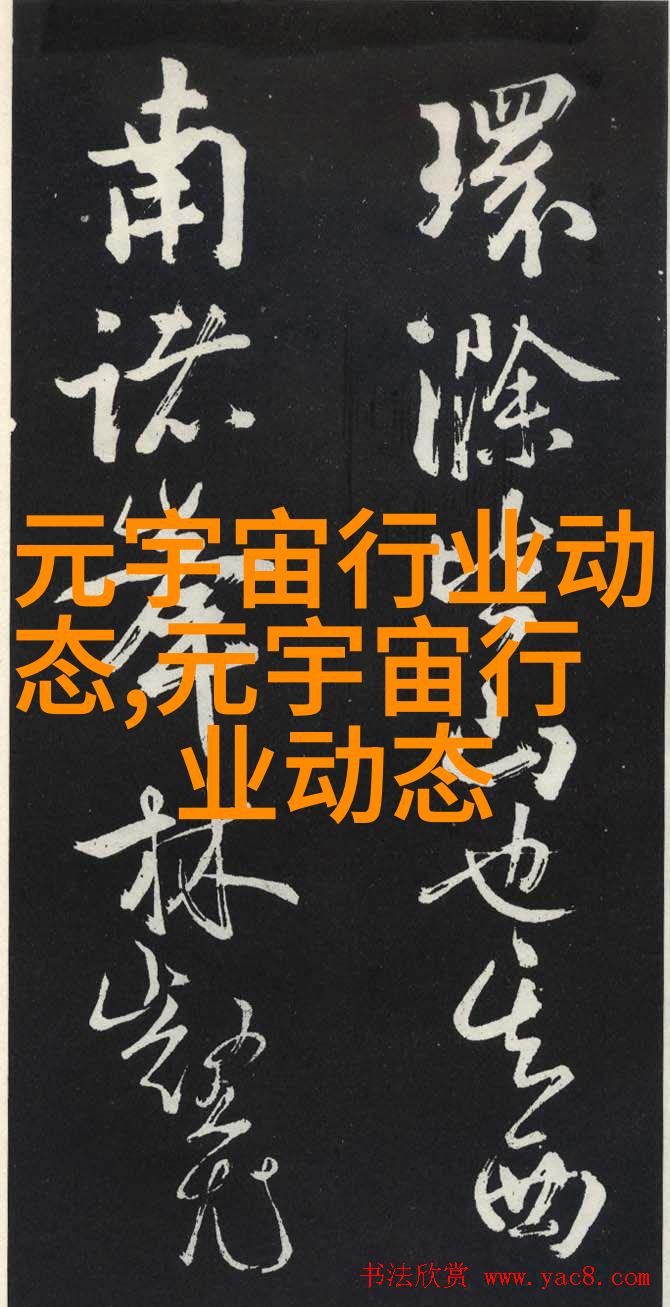 環滁皆山也其西
南諸峯林壑尤
元宇宙行业动
态,元宇宙行
业动态
书法欣赏 www.yac8.com